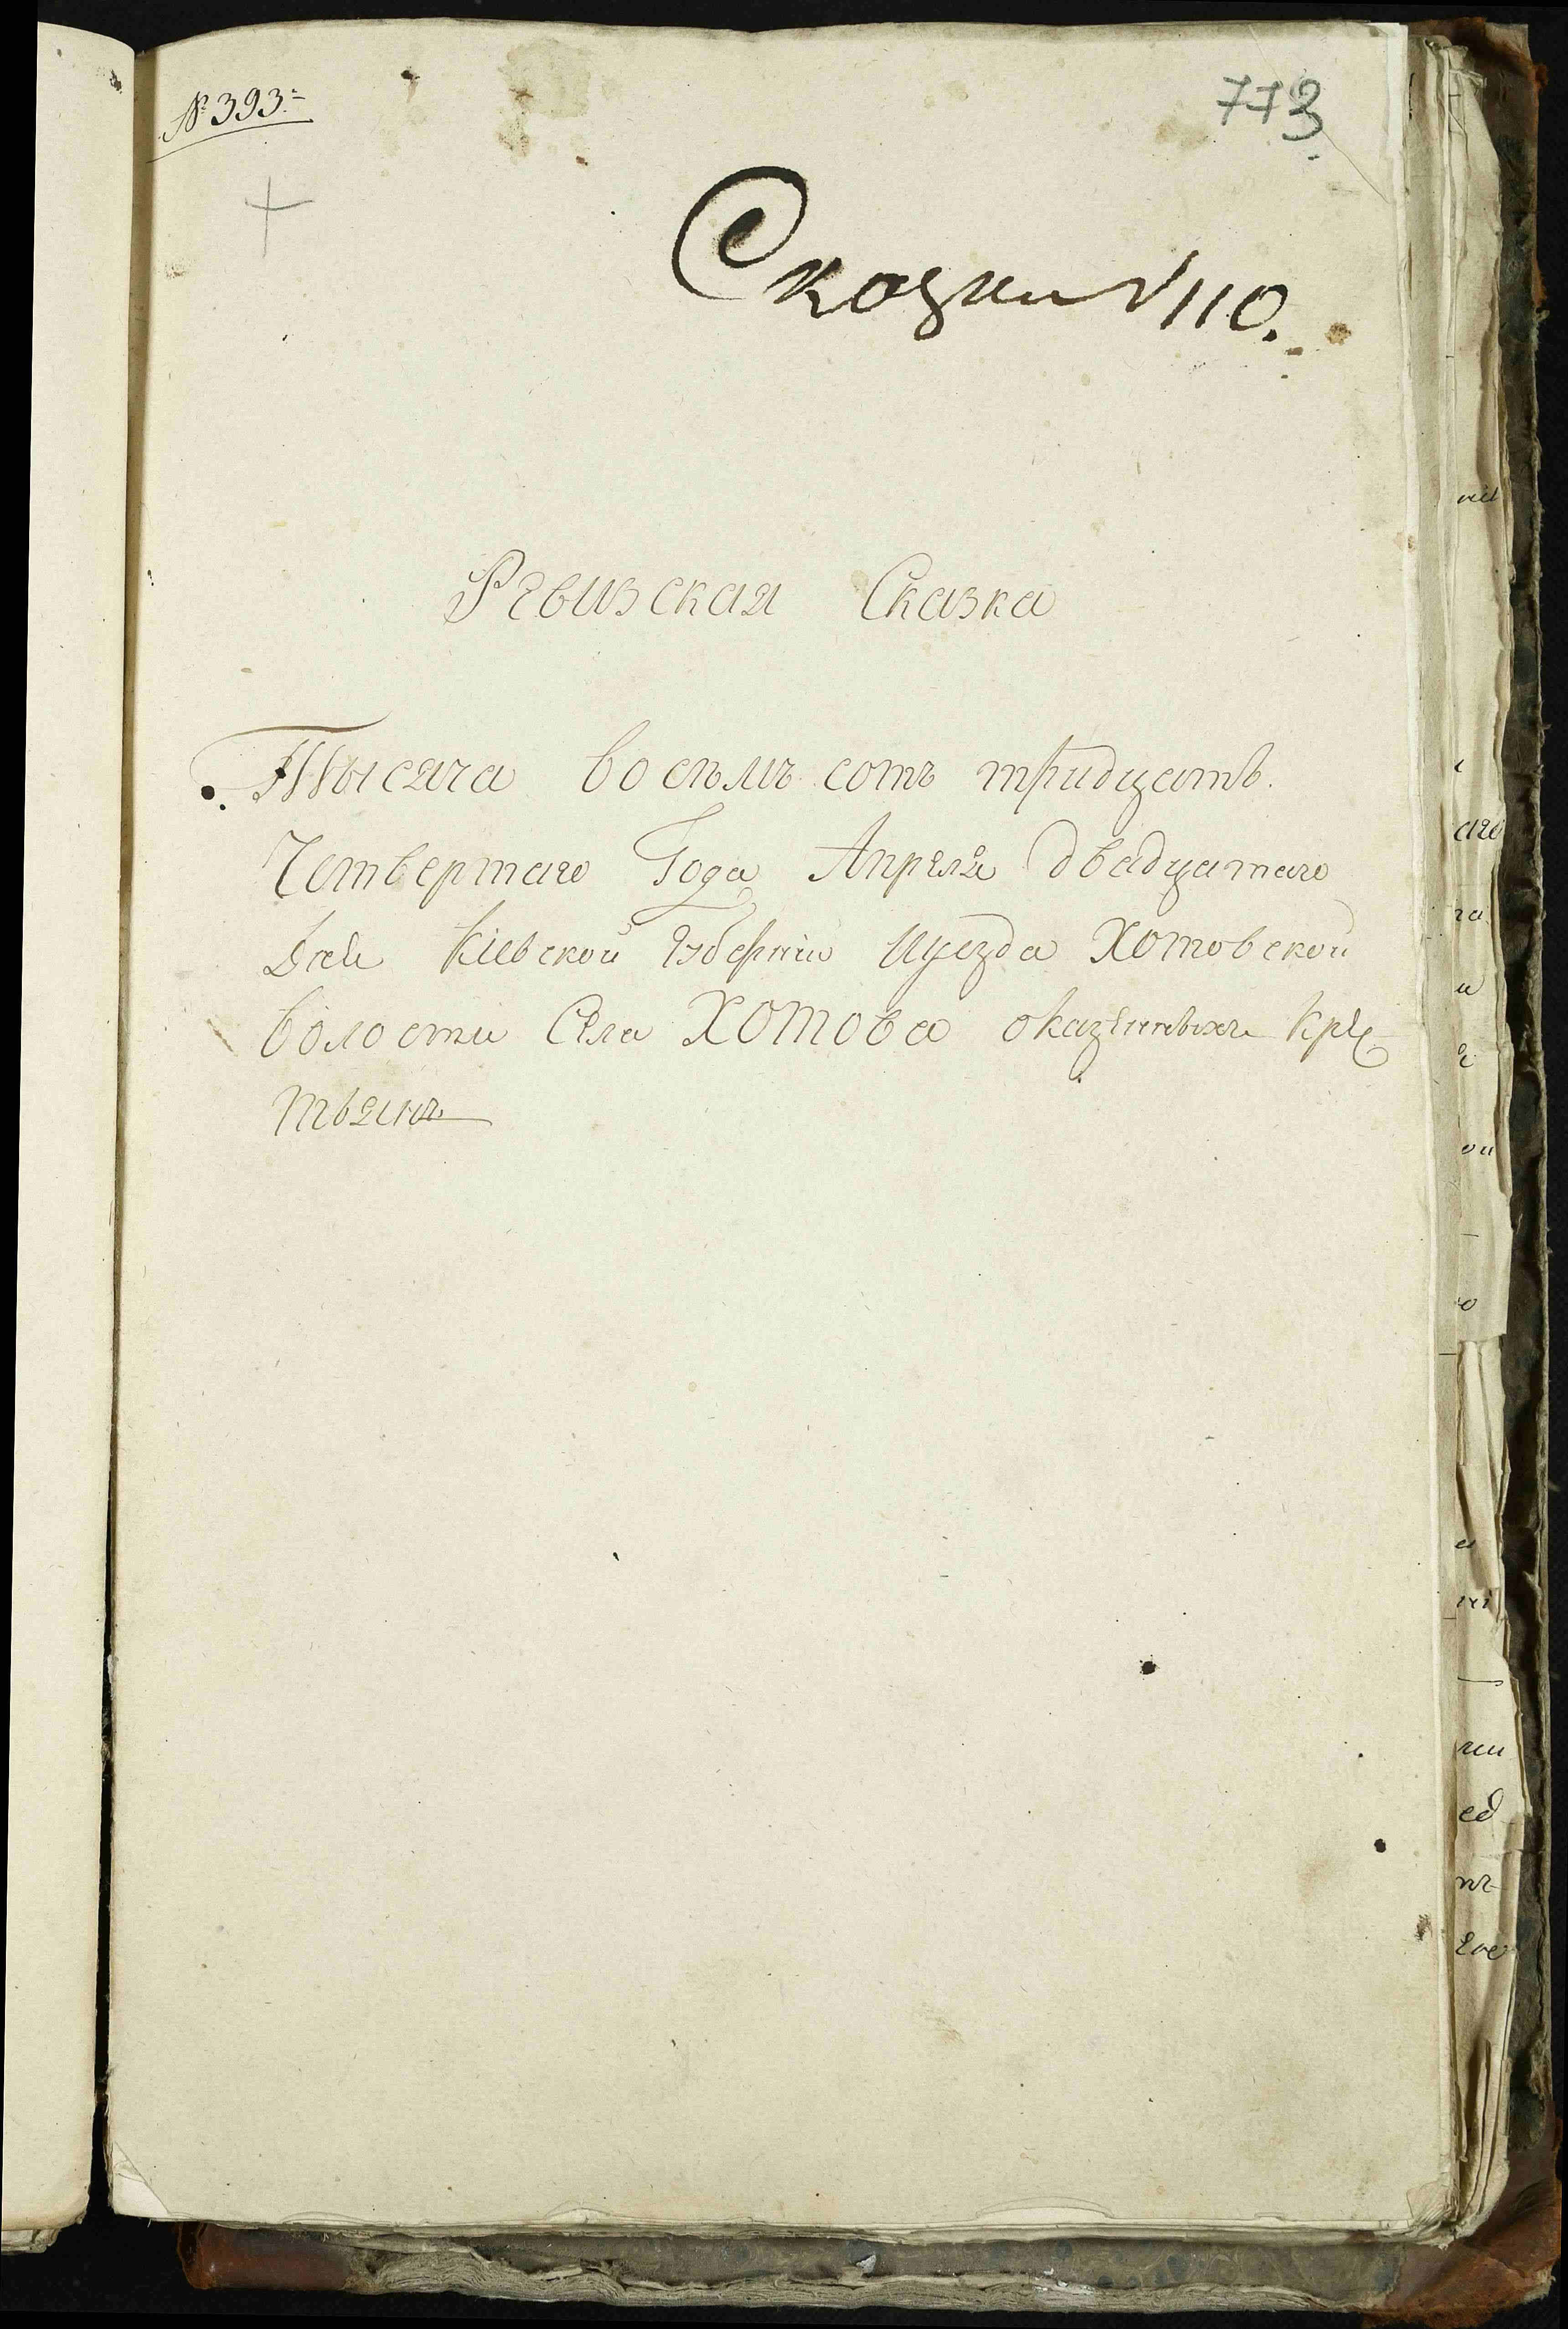 № 393.
773.
Сказки № 110.
Ревизская Сказка
Тысяча восемъ сотъ тридцать.
Четвертаго Года Апреля двадцатаго
Дня Кіевской Губерніи Иуезда Хотовской
Волости Села Хотова оказенныхъ Крес
тьянъ